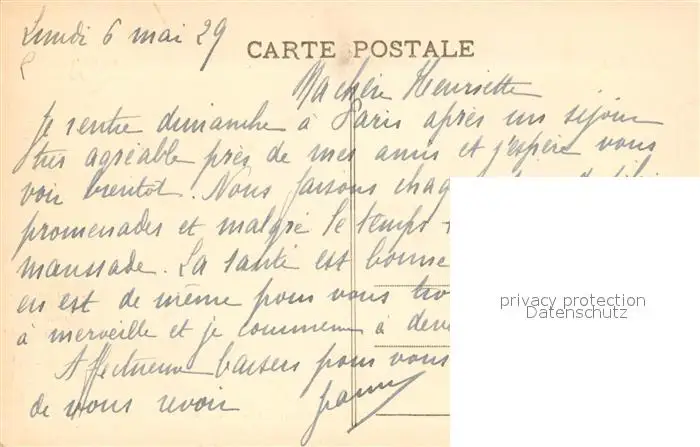 Lundi 6 mai 29
CARTE POSTALE
Ma chère Henriette
Je rentre dimanche à Paris après un séjour
très agréable près de mes amis et j'espère vous
voir bientôt. Nous faisons chaq
promenades et malgré le temps
maussade. La santé est bonne
en est de même pour vous
à merveille et je commence à
Affectueux baisers pour vous
de vous revoir
privacy protection
Datenschutz